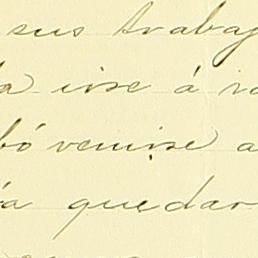 sus trabaj
a irse á
bó venirse a
a quedar